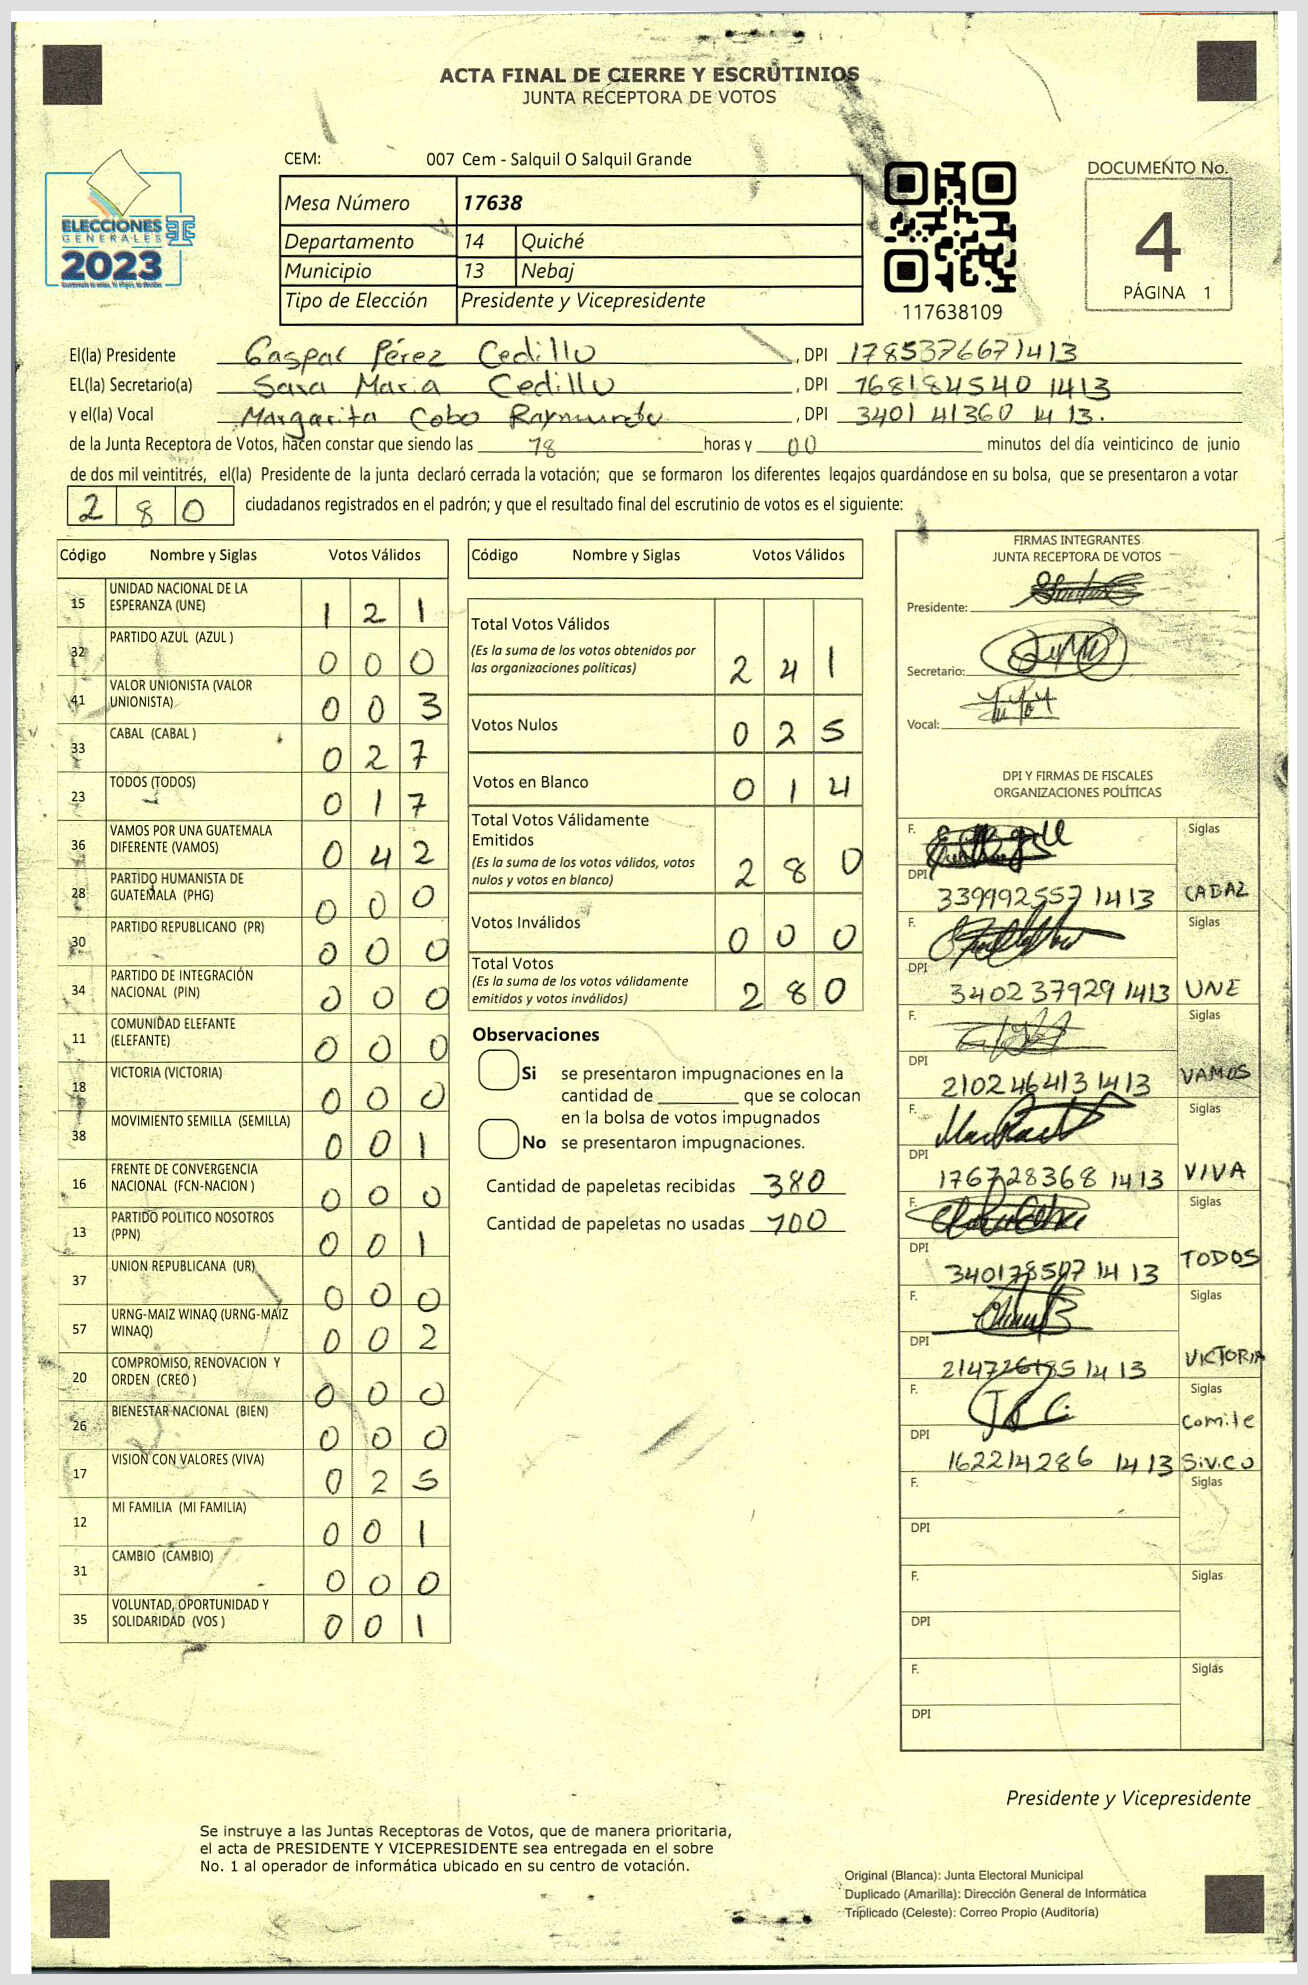 ACTA FINAL DE CIERRE Y ESCRUTINIOS
JUNTA RECEPTORA DE VOTOS
CEM: 007 Cem - Salquil O Salquil Grande
DOCUMENTO No.
4
PÁGINA 1
ELECCIONES
GENERALES
2023
Mesa Número 17638
Departamento 14 Quiché
Municipio 13 Nebaj
Tipo de Elección Presidente y Vicepresidente
117638109
El(la) Presidente Gaspar Pérez Cedillo, DPI 1785376671413
EL(la) Secretario(a) Sara Maria Cedillo, DPI 768184540 1413
y el(la) Vocal Margarita Cobo Raymundo, DPI 3401 41360 14 13.
de la Junta Receptora de Votos, hacen constar que siendo las 18 horas y 00 minutos del día veinticinco de junio
de dos mil veintitrés, el(la) Presidente de la junta declaró cerrada la votación; que se formaron los diferentes legajos quardándose en su bolsa, que se presentaron a votar
280 ciudadanos registrados en el padrón; y que el resultado final del escrutinio de votos es el siguiente:
Código Nombre y Siglas Votos Válidos
15 UNIDAD NACIONAL DE LA ESPERANZA (UNE) 1 2 1
32 PARTIDO AZUL (AZUL ) 0 0 0
41 VALOR UNIONISTA (VALOR UNIONISTA) 0 0 3
33 CABAL (CABAL ) 0 2 7
23 TODOS (TODOS) 0 1 7
36 VAMOS POR UNA GUATEMALA DIFERENTE (VAMOS) 0 4 2
28 PARTIDO HUMANISTA DE GUATEMALA (PHG) 0 0 0
30 PARTIDO REPUBLICANO (PR) 0 0 0
34 PARTIDO DE INTEGRACIÓN NACIONAL (PIN) 0 0 0
11 COMUNIDAD ELEFANTE (ELEFANTE) 0 0 0
18 VICTORIA (VICTORIA) 0 0 0
38 MOVIMIENTO SEMILLA (SEMILLA) 0 0 1
16 FRENTE DE CONVERGENCIA NACIONAL (FCN-NACION ) 0 0 0
13 PARTIDO POLITICO NOSOTROS (PPN) 0 0 1
37 UNION REPUBLICANA (UR) 0 0 0
57 URNG-MAIZ WINAQ (URNG-MAIZ WINAQ) 0 0 2
20 COMPROMISO, RENOVACION Y ORDEN (CREO ) 0 0 0
26 BIENESTAR NACIONAL (BIEN) 0 0 0
17 VISION CON VALORES (VIVA) 0 2 5
12 MI FAMILIA (MI FAMILIA) 0 0 1
31 CAMBIO (CAMBIO) 0 0 0
35 VOLUNTAD, OPORTUNIDAD Y SOLIDARIDAD (VOS ) 0 0 1
Código Nombre y Siglas Votos Válidos
Total Votos Válidos
(Es la suma de los votos obtenidos por
las organizaciones políticas) 2 4 1
Votos Nulos 0 2 5
Votos en Blanco 0 1 4
Total Votos Válidamente
Emitidos
(Es la suma de los votos válidos, votos
nulos y votos en blanco) 2 8 0
Votos Inválidos 0 0 0
Total Votos
(Es la suma de los votos válidamente
emitidos y votos inválidos) 2 8 0
Observaciones
Si se presentaron impugnaciones en la
cantidad de ________ que se colocan
en la bolsa de votos impugnados
No se presentaron impugnaciones.
Cantidad de papeletas recibidas 380
Cantidad de papeletas no usadas 100
FIRMAS INTEGRANTES
JUNTA RECEPTORA DE VOTOS
Presidente:
Secretario:
Vocal:
DPI Y FIRMAS DE FISCALES
ORGANIZACIONES POLÍTICAS
F. Siglas
DPI 339992557 1413 CABAL
F. Siglas
DPI 3402 37929 1413 UNE
F. Siglas
DPI 210246413 1413 VAMOS
F. Siglas
DPI 176728368 1413 VIVA
F. Siglas
DPI 340178507 14 13 TODOS
F. Siglas
DPI 214726185 14 13 VICTORIA
F. Siglas
DPI 162214286 14 13 Comite Sivico
F. Siglas
DPI
F. Siglas
DPI
F. Siglas
DPI
Presidente y Vicepresidente
Se instruye a las Juntas Receptoras de Votos, que de manera prioritaria,
el acta de PRESIDENTE Y VICEPRESIDENTE sea entregada en el sobre
No. 1 al operador de informática ubicado en su centro de votación.
Original (Blanca): Junta Electoral Municipal
Duplicado (Amarilla): Dirección General de Informática
Triplicado (Celeste): Correo Propio (Auditoría)